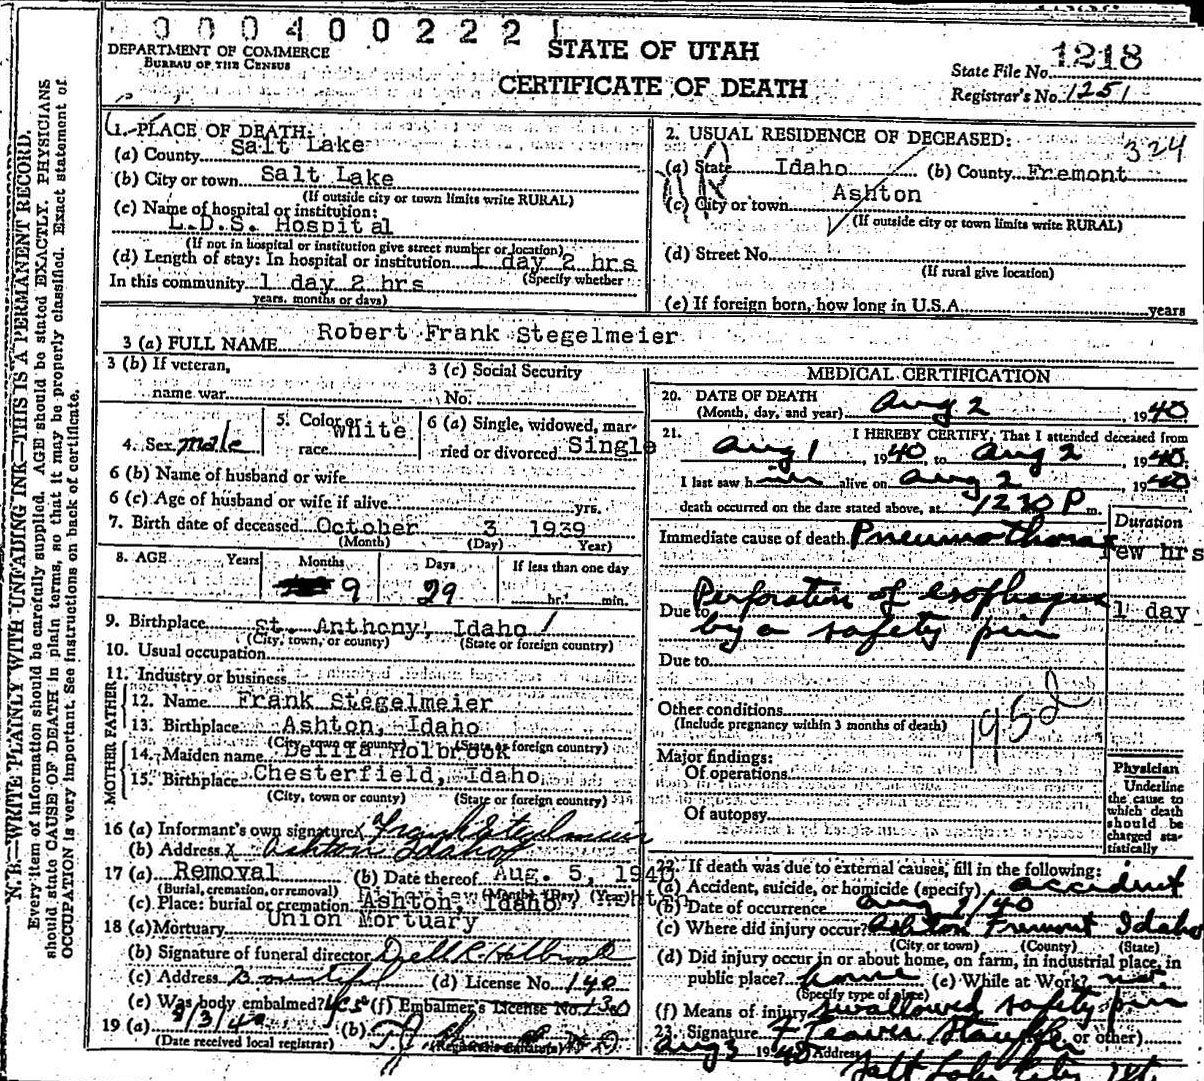 000400222 1
DEPARTMENT OF COMMERCE
BUREAU OF THE CENSUS
STATE OF UTAH
CERTIFICATE OF DEATH
State File No. 1218
Registrar's No. 1251
N. B.—WRITE PLAINLY WITH UNFADING INK—THIS IS A PERMANENT RECORD.
Every item of information should be carefully supplied. AGE should be stated EXACTLY. PHYSICIANS
should state CAUSE OF DEATH in plain terms, so that it may be properly classified. Exact statement of
OCCUPATION is very important. See instructions on back of certificate.
1. PLACE OF DEATH:
(a) County Salt Lake
(b) City or town Salt Lake
(If outside city or town limits write RURAL)
(c) Name of hospital or institution:
L.D.S. Hospital
(If not in hospital or institution give street number or location)
(d) Length of stay: In hospital or institution 1 day 2 hrs
(Specify whether
In this community 1 day 2 hrs
years, months or days)
2. USUAL RESIDENCE OF DECEASED:
324
(a) State Idaho (b) County Fremont
(c) City or town Ashton
(If outside city or town limits write RURAL)
(d) Street No.
(If rural give location)
(e) If foreign born, how long in U.S.A. years
3 (a) FULL NAME Robert Frank Stegelmeier
3 (b) If veteran,
name war
3 (c) Social Security
No.
4. Sex male
5. Color or
race White
6 (a) Single, widowed, mar-
ried or divorced Single
6 (b) Name of husband or wife
6 (c) Age of husband or wife if alive yrs.
7. Birth date of deceased October 3 1939
(Month) (Day) Year)
8. AGE Years Months Days If less than one day
9 29 hr. min.
9. Birthplace St. Anthony, Idaho
(City, town, or county) (State or foreign country)
10. Usual occupation
11. Industry or business
FATHER
12. Name Frank Stegelmeier
13. Birthplace Ashton, Idaho
(City, town or county) (State or foreign country)
MOTHER
14. Maiden name Holbrook
15. Birthplace Chesterfield, Idaho
(City, town or county) (State or foreign country)
16 (a) Informant's own signature X Frank Stegelmeier
(b) Address X Ashton Idaho
17 (a) Removal (b) Date thereof Aug. 5, 1940
(Burial, cremation, or removal) (Month) (Day) (Year)
(c) Place: burial or cremation Ashton, Idaho
18 (a) Mortuary Union Mortuary
(b) Signature of funeral director
(c) Address Bountiful (d) License No. 140
(e) Was body embalmed? yes (f) Embalmer's License No. 130
19 (a) 8/3/40 (b)
(Date received local registrar) (Registrar's signature)
MEDICAL CERTIFICATION
20. DATE OF DEATH
(Month, day, and year) Aug 2 1940
21. I HEREBY CERTIFY, That I attended deceased from
Aug 1, 1940, to Aug 2, 1940.
I last saw him alive on Aug 2 1940
death occurred on the date stated above, at 1230 P m.
Duration
Immediate cause of death Pneumothorax few hrs
Due to Perforation of esophagus 1 day
by a safety pin
Due to
Other conditions
(Include pregnancy within 3 months of death)
195d
Major findings:
Of operations
Of autopsy
Physician
Underline
the cause to
which death
should be
charged sta-
tistically
22. If death was due to external causes, fill in the following:
(a) Accident, suicide, or homicide (specify) accident
(b) Date of occurrence Aug 1/40
(c) Where did injury occur? Ashton Fremont Idaho
(City or town) (County) (State)
(d) Did injury occur in or about home, on farm, in industrial place, in
public place? home (e) While at Work? no.
(Specify type of place)
(f) Means of injury swallowed safety pin
23. Signature or other)
Aug 3 1940 Address
Salt Lake City Ut.